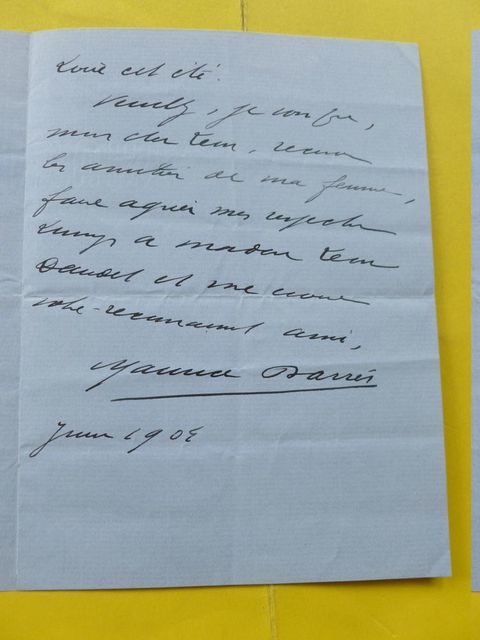 cet été.
Veuillez, je vous prie,
mon cher Léon, recevoir
les amitiés de ma femme,
faire agréer mes respectueux
hommages à madame Léon
Daudet et me croire
votre reconnaissant ami,
Maurice Barrès
Juin 1904